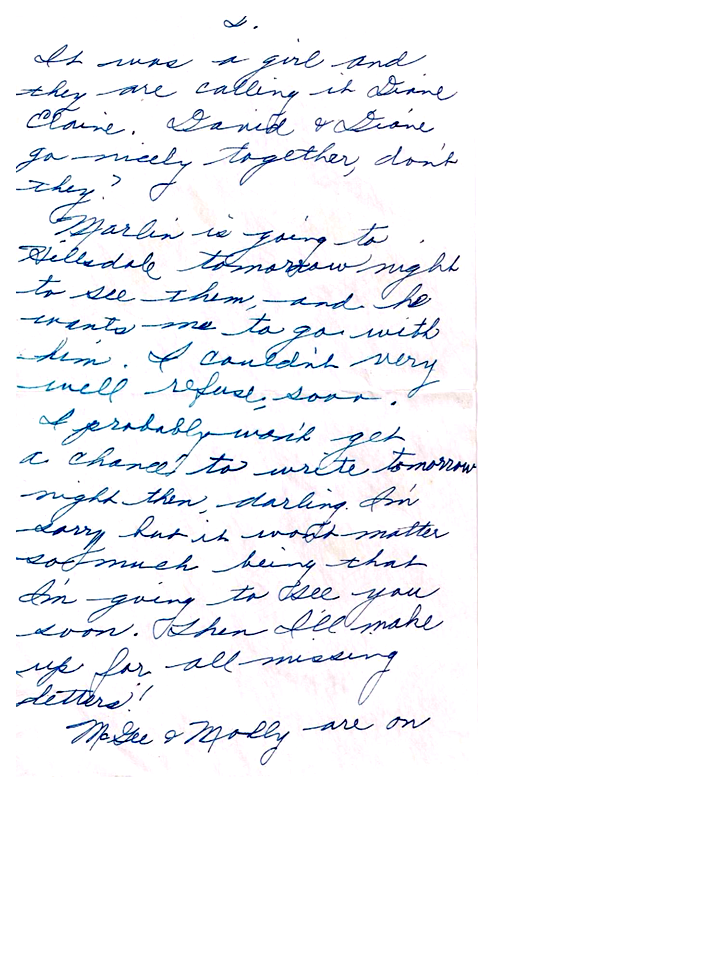 2.
It was a girl and
they are calling it Diane
Claire. David & Diane
go nicely together, don't
they?
Marlin is going to
Hillsdale tomorrow night
to see them, and he
wants me to go with
him. I couldn't very
well refuse, sooo.
I probably won't get
a chance to write tomorrow
night then, darling. I'm
sorry but it won't matter
so much being that
I'm going to see you
soon. Then I'll make
up for all missing
letters!
McGee & Molly are on